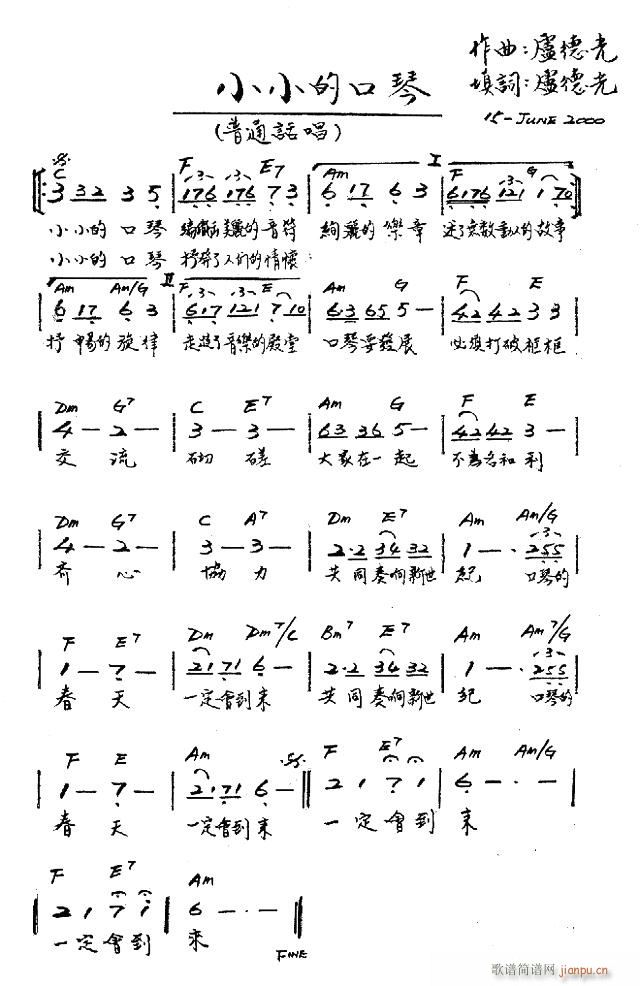 小小的口琴
(普通話唱)
作曲:盧德光
填詞:盧德光
15-JUNE 2000
C F E7 Am I F G
3 3 2 3 5 176 176 7 3 6 17 6 3 6176 121 1 70
小小的 口 琴 編織出美麗的音符 絢麗的 樂章 述了 動人的故事
小小的 口 琴 抒發了人們的情懷
Am Am/G II F E Am G F E
6 17 6 3 617 121 7 10 63 65 5 - 42 42 3 3
抒暢的旋律 走進了音樂的殿堂 口琴要發展 必須打破框框
Dm G7 C E7 Am G F E
4 - 2 - 3 - 3 - 63 36 5 - 42 42 3 -
交 流 切 磋 大家在一起 不為名和利
Dm G7 C A7 Dm E7 Am Am/G
4 - 2 - 3 - 3 - 2·2 34 32 1 - · 255
齐 心 協 力 共同奏响新世 紀 口琴的
F E7 Dm Dm7/C Bm7 E7 Am Am7/G
1 - 7 - 21 71 6 - 2·2 34 32 1 - · 255
春 天 一定會到來 共同奏响新世 纪 口琴的
F E Am F E7 Am Am/G
1 - 7 - 21 71 6 - 2 1 7 1 6 - · -
春 天 一定會到來 一 定 會到 來
F E7 Am
2 1 7 1 6 - · -
一定會到 來
FINE
歌谱简谱网
jianpu.cn